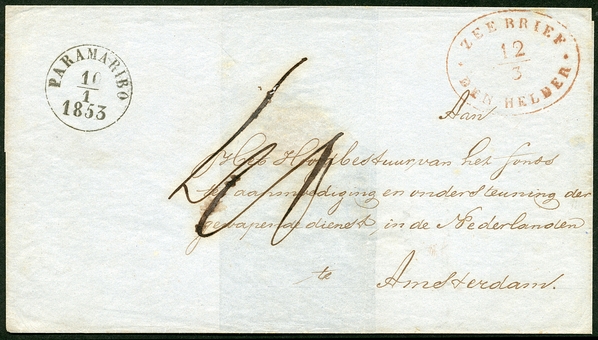 PARAMARIBO
1
1853
ZEEBRIEF
12
3
DEN HELDER
Aan
Het Hoofdbestuur van het fonds
ter aanmoediging en ondersteuning der
gewapende dienst, in de Nederlanden
te Amsterdam.